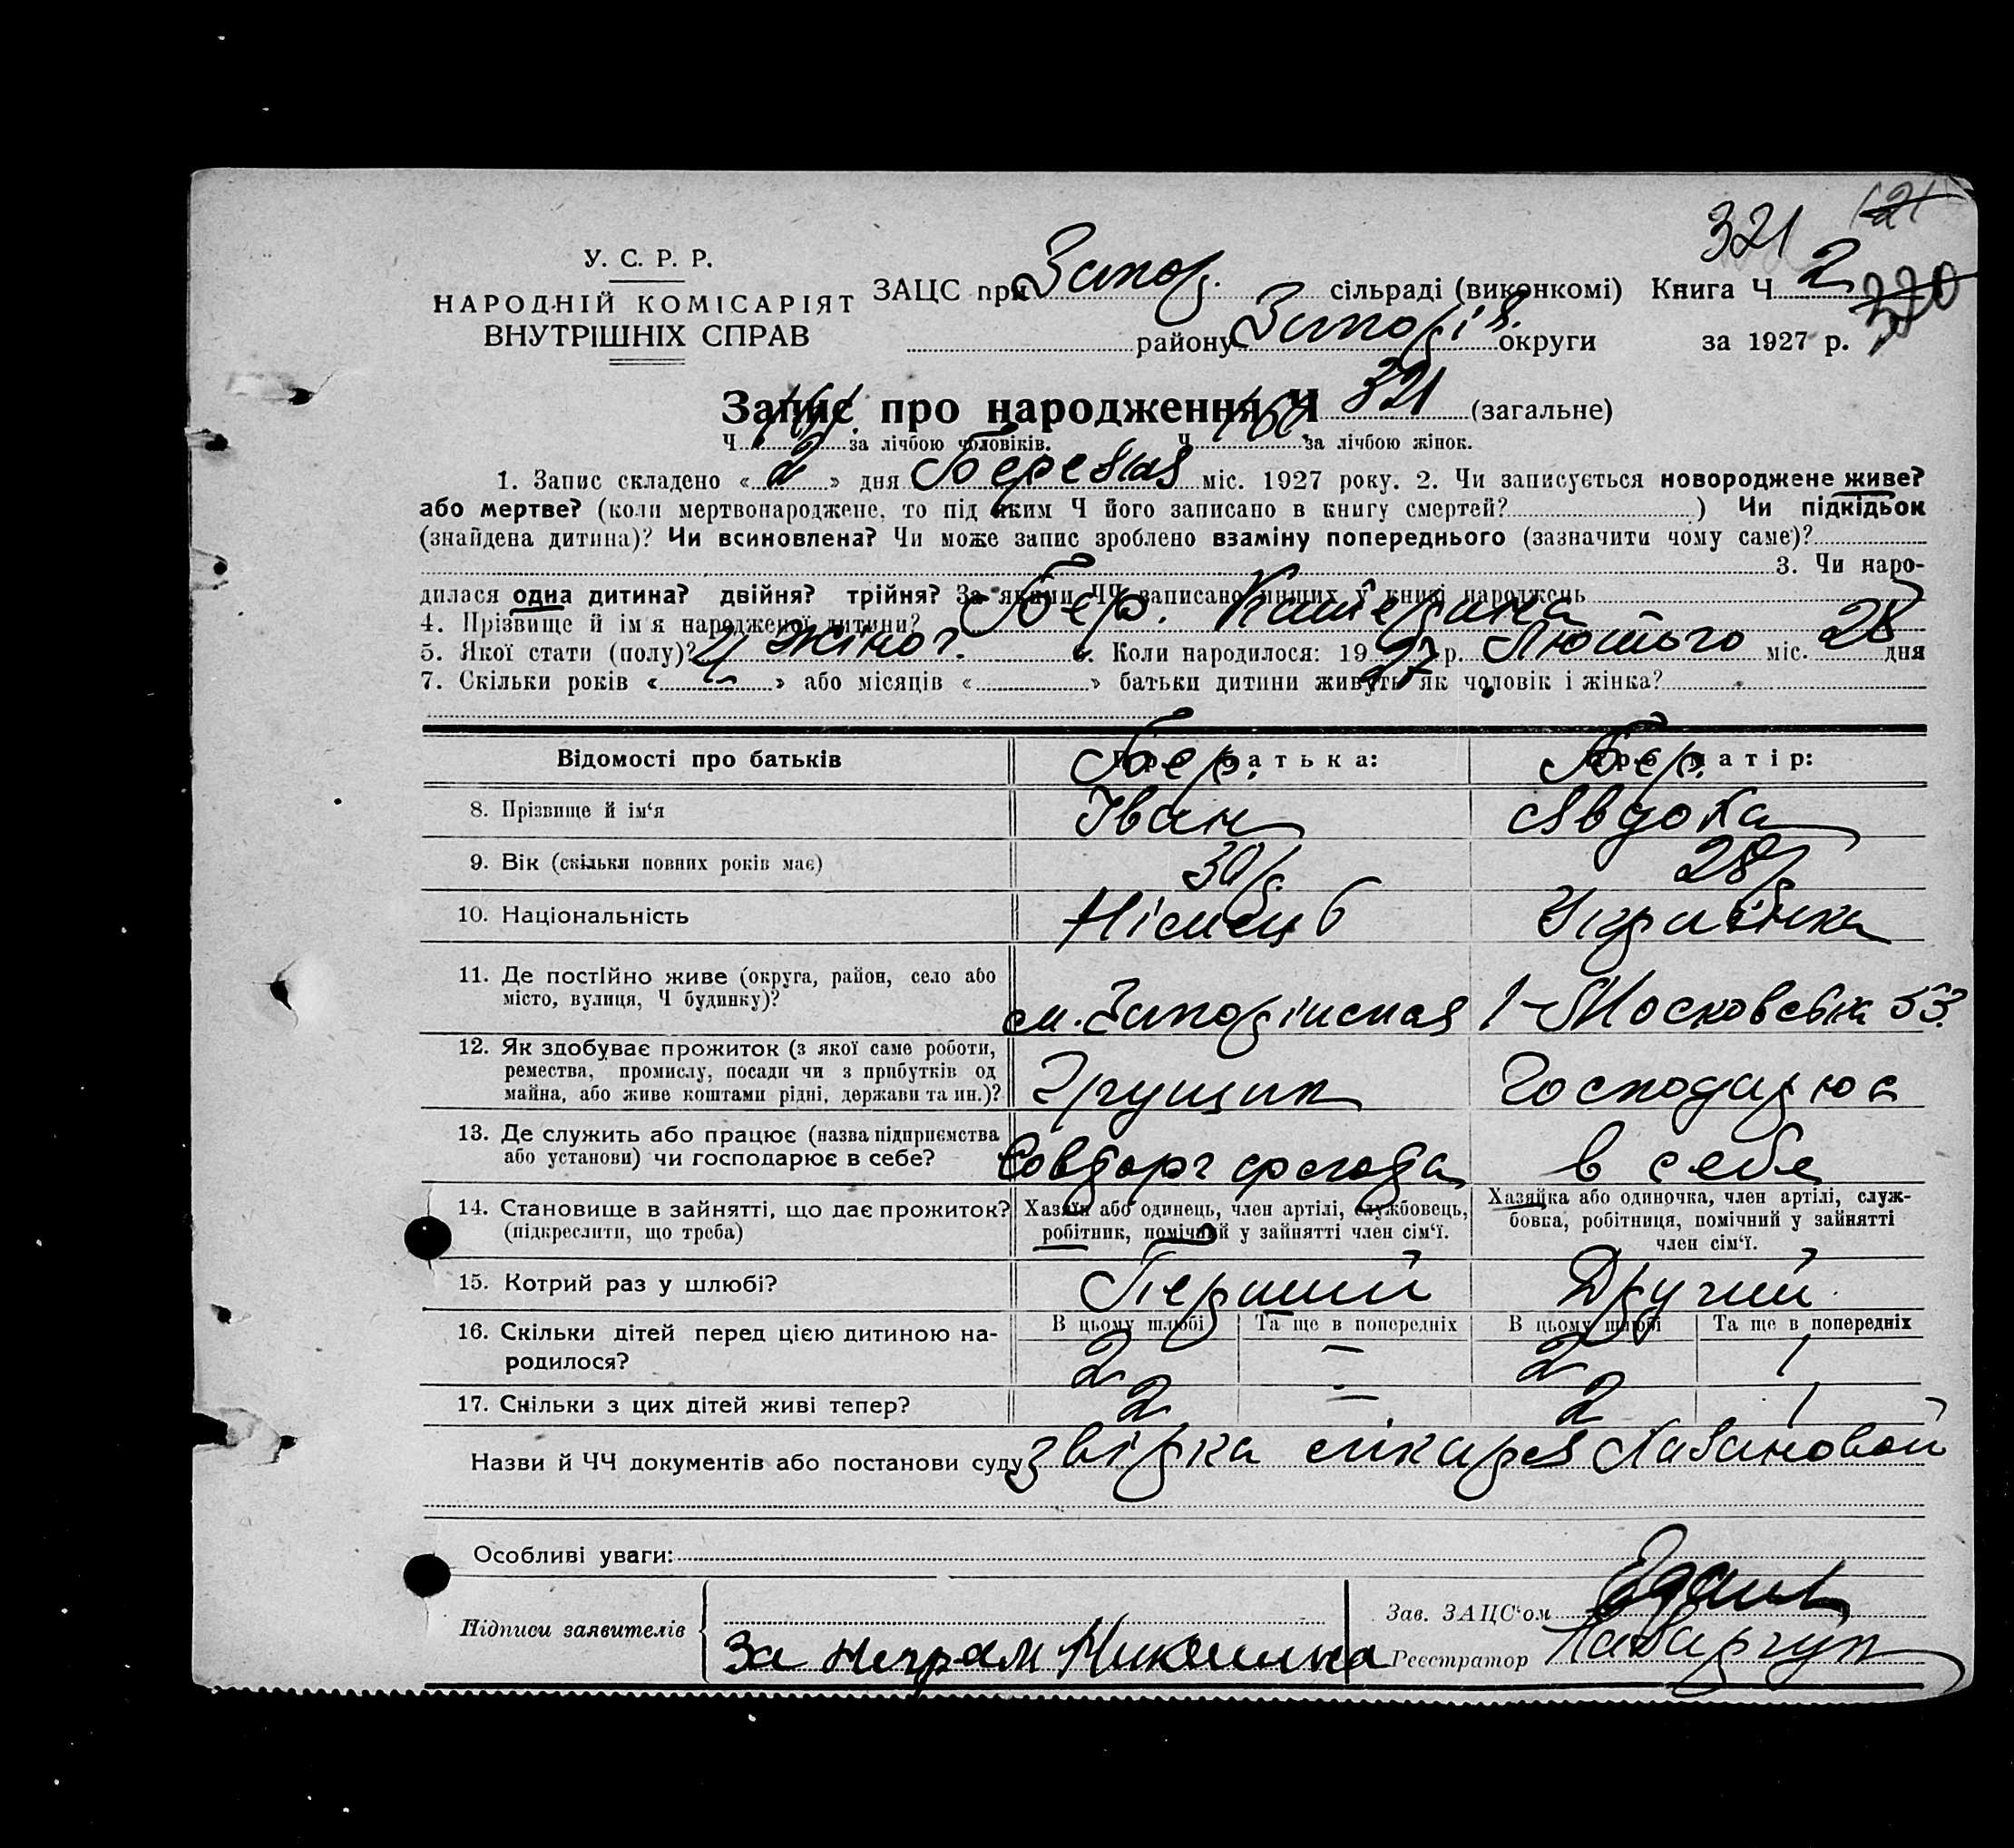 321 121
У. С. Р. Р.
НАРОДНІЙ КОМІСАРІЯТ
ВНУТРІШНІХ СПРАВ
ЗАЦС при Запор. сільраді (виконкомі) Книга Ч 2 320
району Запоріз. округи за 1927 р.
Запис про народження Ч 321 (загальне)
Ч 161 за лічбою чоловіків. Ч 160 за лічбою жінок.
1. Запис складено « 2 » дня Березня міс. 1927 року. 2. Чи записується новороджене живе?
або мертве? (коли мертвонароджене, то під яким Ч його записано в книгу смертей? ) Чи підкідьок
(знайдена дитина)? Чи всиновлена? Чи може запис зроблено взаміну попереднього (зазначити чому саме)?
3. Чи наро-
дилася одна дитина? двійня? трійня? За якими ЧЧ записано инших у книзі народжень
4. Прізвище й ім'я народженої дитини? Бер. Катерина
5. Якої стати (полу)? Жіноч. 6. Коли народилося: 1927 р. Лютого міс. 28 дня
7. Скільки років « 4 » або місяців « » батьки дитини живуть як чоловік і жінка?
Відомості про батьків Про батька: Про матір:
8. Прізвище й ім'я Бер. Іван Бер. Явдока
9. Вік (скільки повних років має) 30 р. 28 р.
10. Національність Німець Українка
11. Де постійно живе (округа, район, село або
місто, вулиця, Ч будинку)? м. Запоріжжя 1-Московська 53.
12. Як здобуває прожиток (з якої саме роботи,
ремества, промислу, посади чи з прибутків од
майна, або живе коштами рідні, держави та ин.)? Грущик Господарює
13. Де служить або працює (назва підприємства
або установи) чи господарює в себе? в себе
14. Становище в зайнятті, що дає прожиток?
(підкреслити, що треба)
Хазяїн або одинець, член артілі, службовець,
робітник, помічний у зайнятті член сім'ї.
Хазяйка або одиночка, член артілі, служ-
бовка, робітниця, помічний у зайнятті
член сім'ї.
15. Котрий раз у шлюбі? Перший Другий
В цьому шлюбі Та ще в попередніх В цьому шлюбі Та ще в попередніх
16. Скільки дітей перед цією дитиною на-
родилося? 2 – 2 1
17. Скільки з цих дітей живі тепер? 2 – 2 1
Назви й ЧЧ документів або постанови суду звірка лікаря Лазановой
Особливі уваги:
Підписи заявителів
Зав. ЗАЦС'ом
За неграм Реєстратор